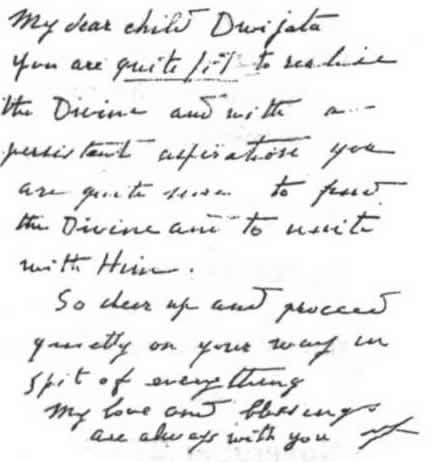 My dear child Dwijata
you are quite fit to realise
the Divine and with a
persistent aspiration you
are quite sure to find
the Divine and to unite
with Him.
So cheer up and proceed
quietly on your way in
spit of everything
My love and blessings
are always with you